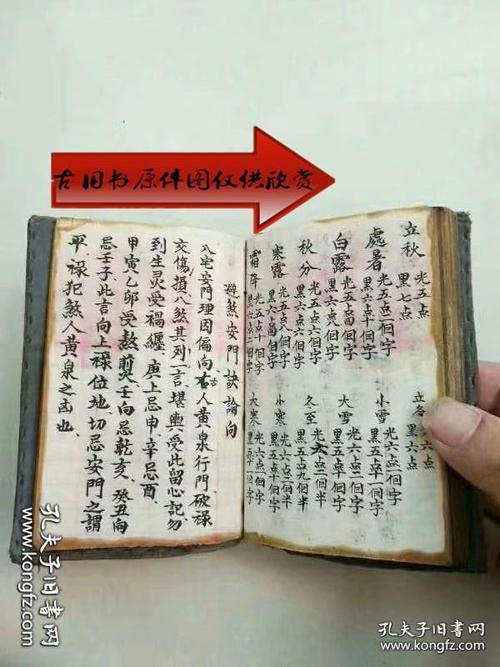 古旧书原件图仅供欣赏
立秋 光五点 黑七点
處暑 光五点二個字 黑六点十個字
白露 光五点四個字 黑六点八個字
秋分 光五点六個字 黑六点六個字
寒露 光五点八個字 黑六点四個字
霜降 光五点十個字 黑六点二個字
立冬 光六点 黑六点
小雪 光六点二個字 黑五点十個字
大雪 光六点 個字 黑五点 個字
冬至 光六点二個半 黑五点九個半
小寒 光六点二個字 黑五点十個字
大寒 光六点一個字 黑五点十一個字
避煞安門訣論向
八宅安門理因偏向右人黃泉行門破祿
吉
交傷損八煞其列一言堪輿受此留心記勿
到生灵受禍纏庚上忌申辛忌酉
甲寅乙卯受熬煎壬向忌乾亥癸丑向
忌壬子此言向上祿位地切忌安門之謂
平祿犯煞人黃泉之凶也
孔夫子旧書网
www.kongfz.com
孔夫子旧書网
www.kongfz.com